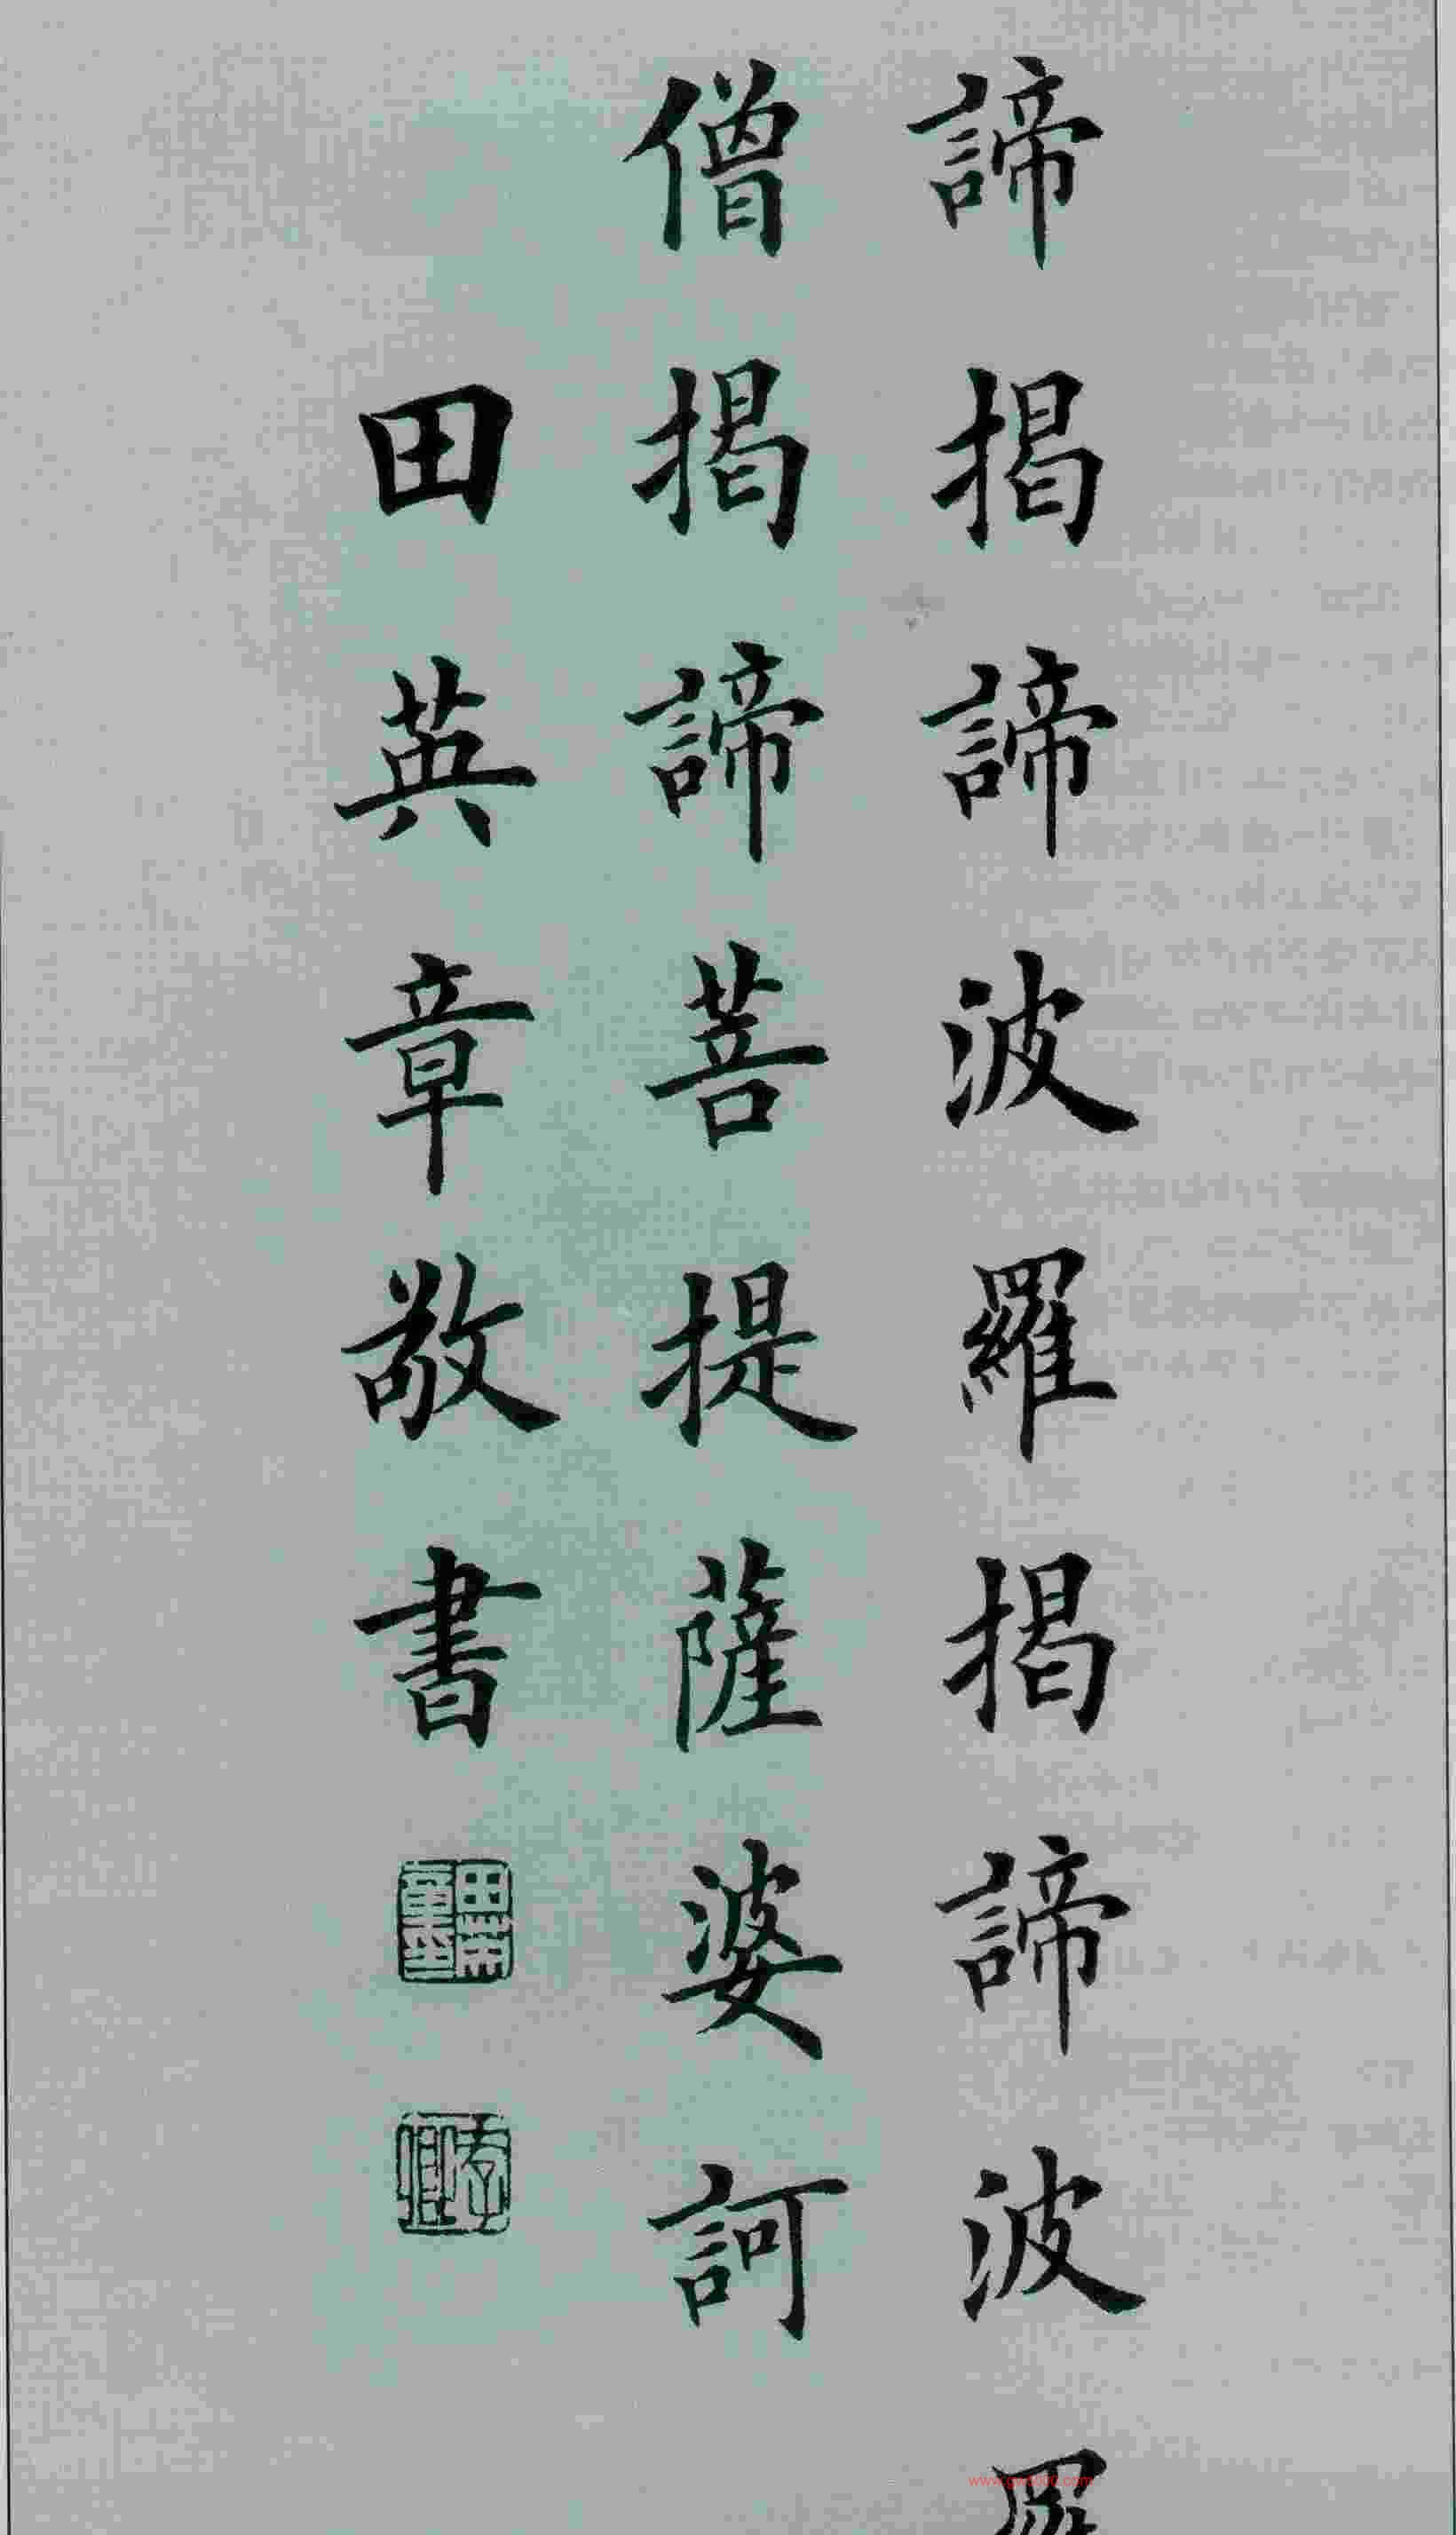 諦揭諦波羅揭諦波羅
僧揭諦菩提薩婆訶
田英章敬書
田英章印